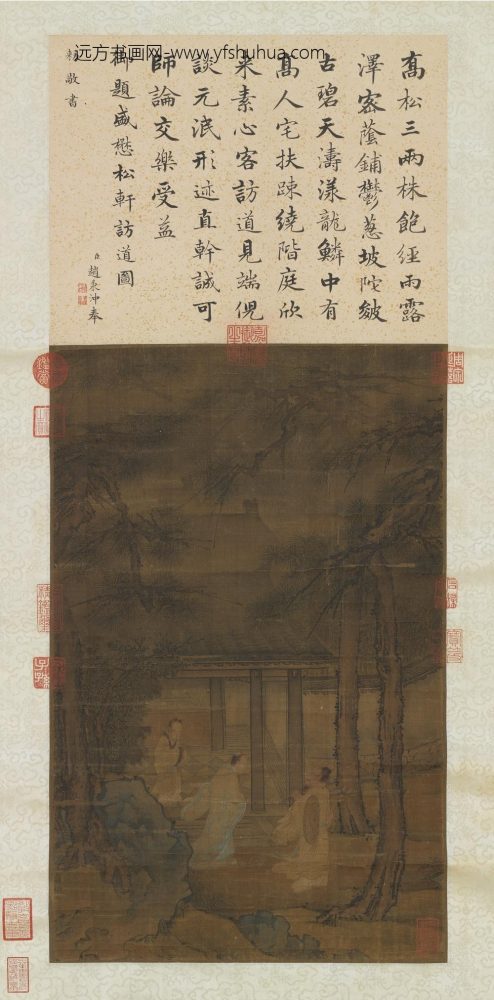 远方书画网-www.yfshuhua.com
髙松三兩株飽經雨露
澤密蔭鋪鬱葱坡陀皴
古碧天濤漾龍鱗中有
髙人宅扶踈繞階庭欣
来素心客訪道見端倪
談元泯形迹直幹誠可
師論交樂受益
御題盛懋松軒訪道圖
臣趙秉沖奉
敕敬書